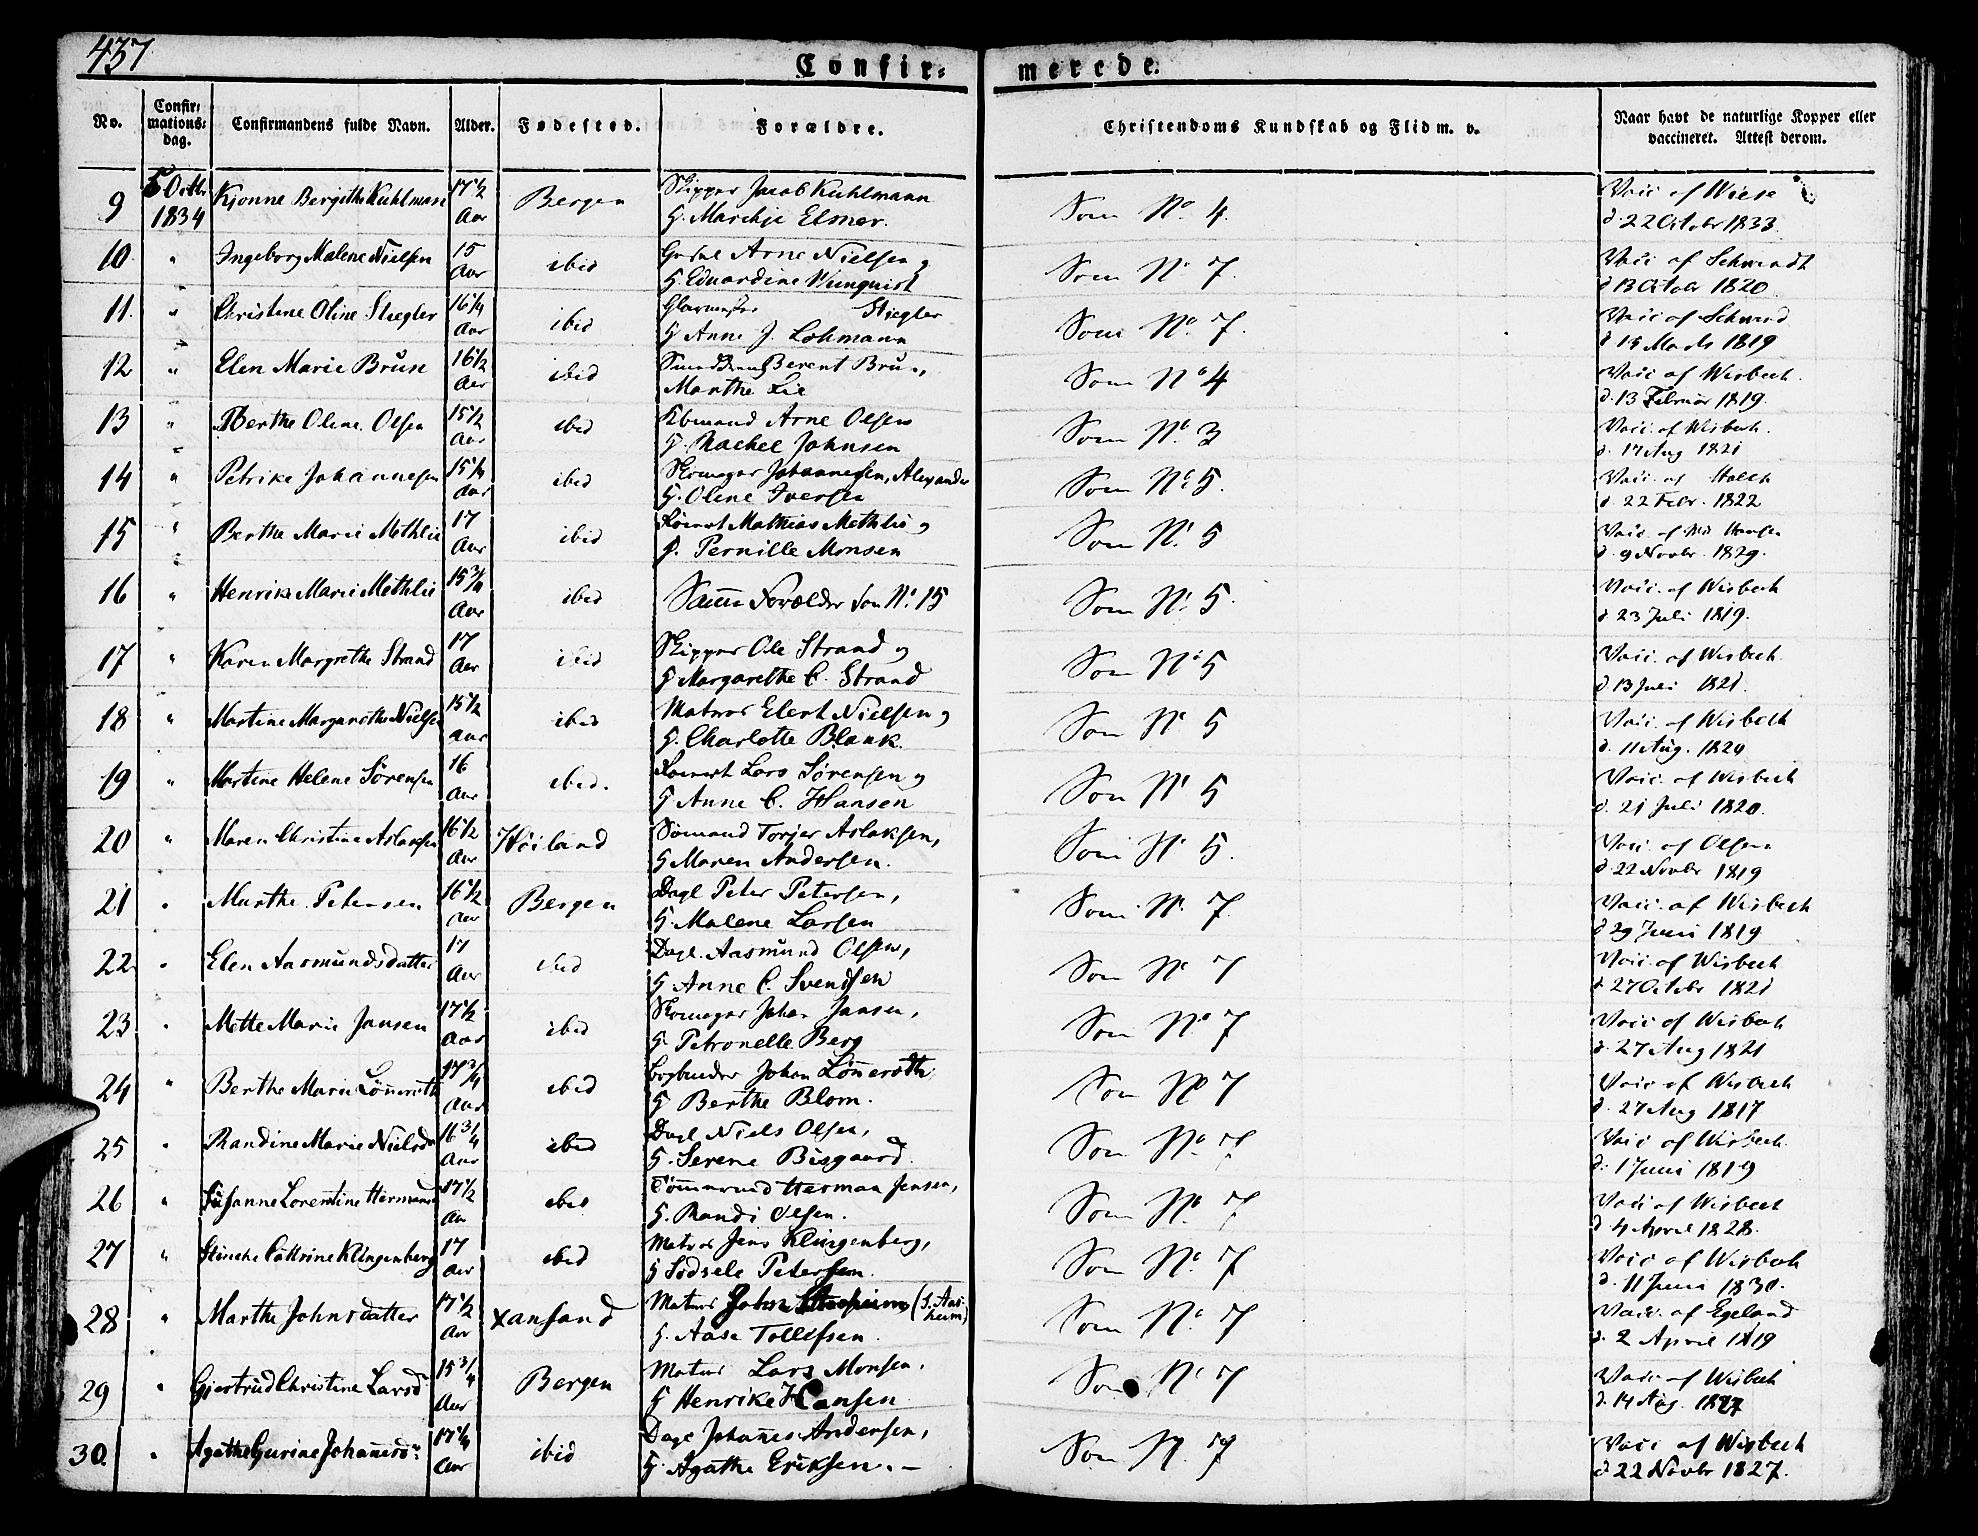 437
Confir= merede.
No.
Confir=
mations=
dag.
Confirmandens fulde Navn.
Alder.
Fødested.
Forældre.
Christendoms Kundskab og Flid m. v.
Naar havt de naturlige Kopper eller
vaccineret. Attest derom.
9 5 Octbr 1834 Kjonne Bergithe Kuhlmann 17 1/2 Aar Bergen Skipper Jacob Kuhlmann
H. Marchje Elsner. Som No. 4. Vacc. af Wiese
d. 22 Octobr 1833.
10 " Ingeborg Malene Nielsen 15 Aar ibid Arne Nielsen og
H. Eduardine Wunquist Som No 7. Vacc. af Schwindt
d 13 Octobr 1820.
11. " Christine Oline Stiegler 16 1/4 Aar ibid Glarmester Stiegler
H Anne J. Lohmann Som No. 7. Vacc. af
d 15 Marts 1819
12 " Elen Marie Brun 16 1/2 Aar ibid Berent Brun,
Marthe Lie Som No 4 Vacc. af Wisbech.
d. 13 Februar 1819.
13 " Berthe Oline Olsen 15 1/2 Aar ibid Arne Olsen
H. Rachel Johnsen Som No. 3 Vacc. af Wisbech.
d. 17 Aug 1821
14 " Petrike Johannesen 15 1/4 Aar ibid Skomager Johannesen, Alexander
H. Oline Iversen Som No. 5. Vacc. af
d. 22 Febr. 1822
15 " Berthe Marie Methlie 17 Aar ibid Mathias Methlie og
H. Pernille Monsen Som No. 5 Vacc. af Hansen
d. 9 Novbr. 1829.
16 " Henrike Marie Methlie 15 3/4 Aar ibid Samme Forælder som No. 15 Som No. 5. Vacc. af Wisbech
d 23 Juli 1819.
17 " Karen Margrethe Strand 17 Aar ibid Skipper Ole Strand og
H Margarethe C. Strand Som No 5 Vacc. af Wisbech
d 13 Juli 1821.
18 " Martine Margarethe Nielsen 15 1/2 Aar ibid Matros Elert Nielsen og
H. Charlotte Blank. Som No 5 Vacc. af Wisbech
d. 11 Aug. 1820
19 " Martine Helene Sörensen 16 Aar ibid. Lars Sörensen og
H Anne C. Hansen Som No 5 Vacc. af Wisbech
d. 21 Juli 1820.
20 " Maren Christine Aslaksen 16 1/2 Aar Höiland Sömand Torjer Aslaksen,
H Maren Andersen. Som No 5. Vacc. af Olsen
d. 22 Novbr 1819
21 " Marthe Petersen 16 1/2 Aar Bergen Dagl Peter Petersen,
H. Malene Larsen Som No. 7. Vacc. af Wisbech
d 29 Juni 1819
22 " Elen Aasmundsdatter 17 Aar ibid Dagl. Aasmund Olsen,
H Anne C. Svendsen Som No 7 Vacc. af Wisbech
d 27 Octobr 1821
23 " Mette Marie Jansen 17 1/2 Aar ibid Skomager Johan Jansen,
H. Petronelle Berg Som No 7 Vacc af Wisbech
d. 27 Aug 1821
24 " Berthe Marie Lönneroth 17 3/4 Aar ibid Bogbinder Johan Lönneroth
H Berthe Blom. Som No 7 Vacc. af Wisbech
d. 27 Aug 1817
25 " Randine Marie Nielsdr 16 3/4 Aar ibid Dagl Niels Olsen,
H. Serene Bisgaard. Som No. 7 Vacc af Wisbech.
d. 1 Juni 1819
26 " Susanne Lorentine Hermansd 17 1/2 Aar ibid Tömmermd Herman Jensen,
H. Randi Olsen. Som No. 7 Vacc af Wisbech
d 4 April 1828.
27 " Stinche Cathrine Klingenberg 17 Aar ibid Matros Jens Klingenberg,
H Sidsele Petersen. Som No. 7 Vacc af Wisbech
d. 11 Juni 1830.
28 " Marthe Johnsdatter 17 1/2 Aar Xansand Matros John (J. Aas-
heim)
H. Aase Tollefsen. Som No. 7 Vacc. af Egeland
d. 2 April 1819
29 " Gjertrud Christine Larsd 15 3/4 Aar Bergen Matros Lars Monsen.
H Henrike Hansen Som No 7 Vacc. af Wisbech
d. 14 Aug. 1827
30. " Agathe Gurine Johannesdr 17 1/4 Aar ibid Dagl Johannes Andersen,
H Agathe Eriksen. — Som No. 7 Vacc af Wisbech
d 22 Novbr 1827.